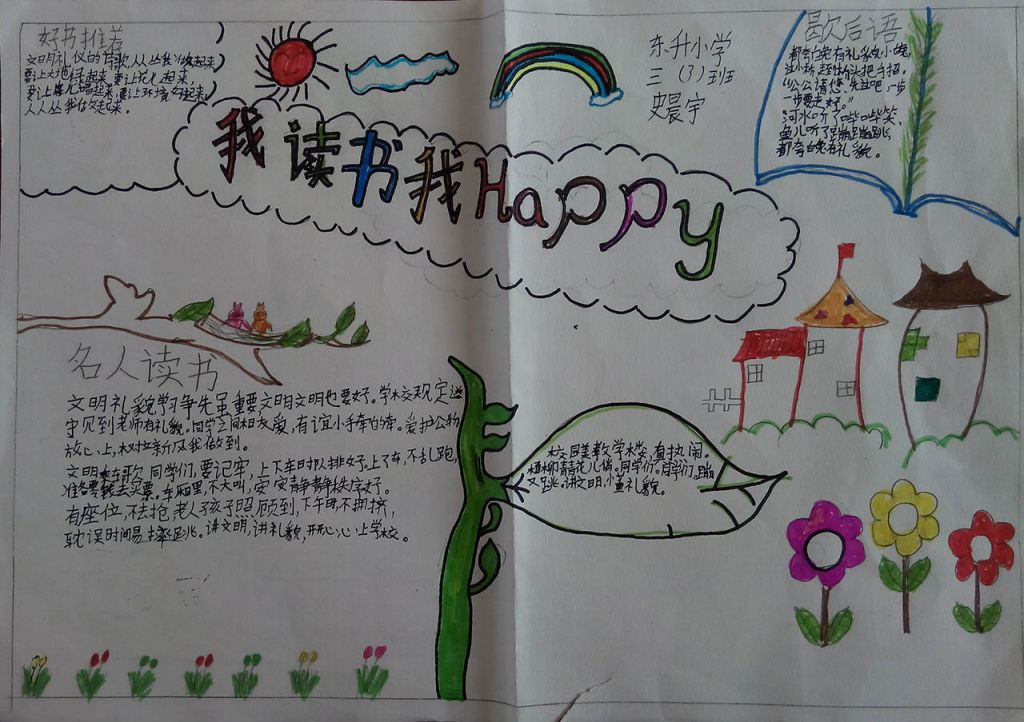 好书推荐
文明礼仪的拜歌人人丛我做起来
要让大地绿起来,要让花儿起来,
要让鸟儿唱起来,要让环境好起来,
人人丛我做起来。
我读书我Happy
东升小学
三(3)班
史晨宇
歇后语
都夸白兔有礼貌,小兔
过小桥,赶快让把手招。
"公公请您先过吧,一步
一步要走好。"
河水听了哗哗笑,
鱼儿听了蹦蹦跳,
都夸白兔有礼貌。
名人读书
文明礼貌学习争先虽重要文明文明也要好。学校规定遵
守见到老师有礼貌。同学之间相友爱,有谊小手牵的牢。爱护公物
放心上,树拉新风我做到。
文明乘车歌,同学们,要记牢,上下车时队排好。上了车,不乱跑,
准备零钱去买票。车厢里,不大叫,安安静静秩序好。
有座位,不去抢,老人孩子照顾到,下车时,不拥挤,
耽误时间易摔跤。讲文明,讲礼貌,开开心心上学校。
校园美教学楼,真热闹。
植柳青青花儿俏。同学们,同学们,蹦
又跳。讲文明,小重礼貌。